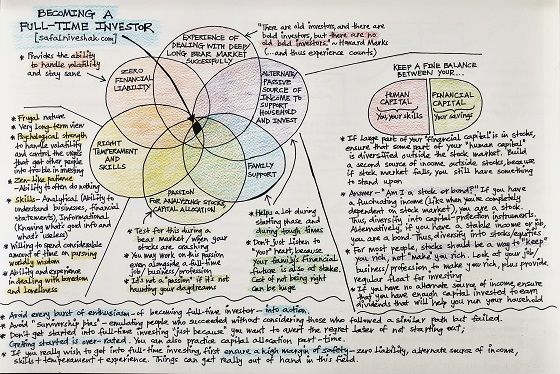 BECOMING A
FULL-TIME INVESTOR
[safalniveshak.com]
* Provides the ability
to handle volatility
and stay sane
ZERO
FINANCIAL
LIABILITY
EXPERIENCE OF
DEALING WITH DEEP
LONG BEAR MARKET
SUCCESSFULLY
"There are old investors, and there are
bold investors, but there are no
old bold investors." ~ Howard Marks
(... and thus experience counts)
ALTERNATE
PASSIVE
SOURCE OF
INCOME TO
SUPPORT
HOUSEHOLD
AND INVEST
RIGHT
TEMPERAMENT
AND SKILLS
FAMILY
SUPPORT
PASSION
FOR ANALYZING STOCKS,
CAPITAL ALLOCATION
* Frugal nature
* Very long-term view
* Psychological strength
to handle volatility
and control the urges
that get other people
into trouble in investing
* Zen-like patience
- Ability to often do nothing
* Skills - Analytical (Ability to
understand business, financial
statements), Informational
(Knowing what's good info and
what's useless)
* Willing to spend considerable
amount of time on pursuing
worldly wisdom
* Ability and experience
in dealing with boredom
and loneliness
* Test for this during a
bear market / when your
stocks are crashing
* You may work on this passion
even alongside a full-time
job / business / profession
* It's not a "passion" if it's not
haunting your daydreams
* Helps a lot during
starting phase and
during tough times
* Don't just listen to
"your" heart, because
your family's financial
future is also at stake.
Cost of not being right
can be huge
KEEP A FINE BALANCE
BETWEEN YOUR...
HUMAN
CAPITAL
You, your skills
FINANCIAL
CAPITAL
Your savings
* If large part of your "financial capital" is in stocks,
ensure that some part of your "human capital"
is diversified outside the stock market. Build
a second source of income outside stocks, because
if stock market falls, you still have something
to stand upon
* Answer - "Am I a stock or bond?" If you have
a fluctuating income (like when you're completely
dependent on stock market), you are a stock.
Thus diversify into capital protection instruments.
Alternatively, if you have a stable income or job
you are a bond. Thus diversify into stocks/equities
* For most people, stocks should be a way to "keep"
you rich, not "make" you rich. Look at your job/
business/profession to make you rich, plus provide
regular float for investing
* If you have no alternate source of income, ensure
that you have enough capital invested to earn
dividends that will help you run your household
* Avoid every burst of enthusiasm - of becoming full-time investor - into action.
* Avoid "Survivorship bias" - emulating people who succeeded without considering those who followed a similar path but failed.
* Don't get started into full-time investing 'just because' you want to avert the regret later of not starting out.
Getting started is over-rated. You can also practice capital allocation part-time.
* If you really wish to get into full-time investing, first ensure a high margin of safety - zero liability, alternate source of income,
skills + temperament + experience. Things can get really out of hand in this field.